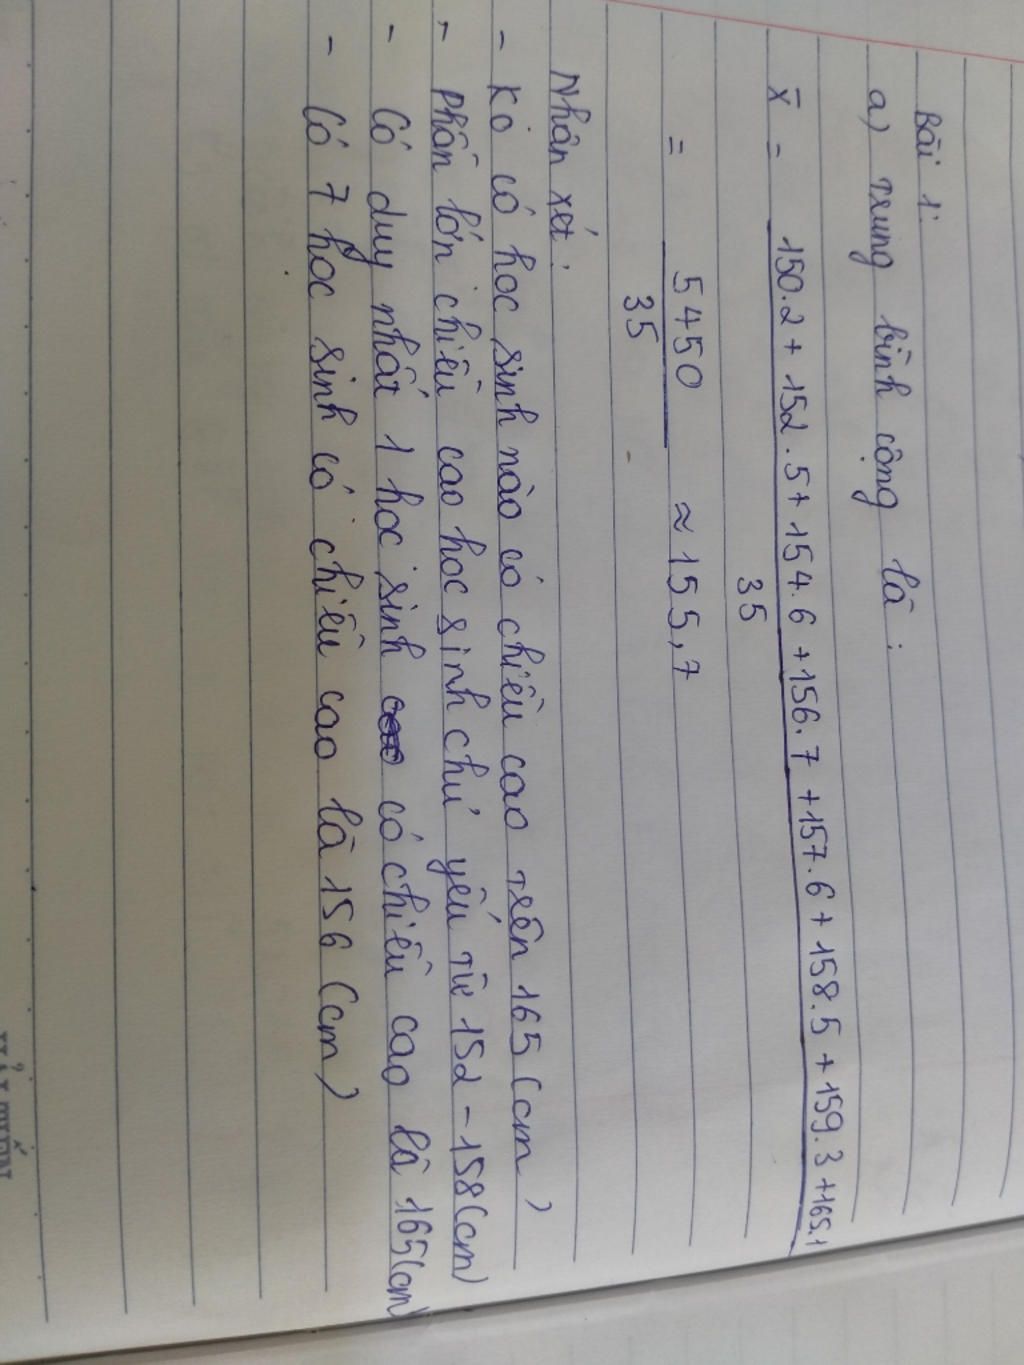 Bài 1:
a) trung bình cộng là:
X̄ = 150.2 + 152.5 + 154.6 + 156.7 + 157.6 + 158.5 + 159.3 + 165.1
35
= 5450 ≈ 155,7
35
Nhận xét:
- Ko có học sinh nào có chiều cao trên 165 (cm)
- Phần lớn chiều cao học sinh chủ yếu từ 152 - 158 (cm)
- Có duy nhất 1 học sinh có chiều cao là 165 (cm)
- Có 7 học sinh có chiều cao là 156 (cm)